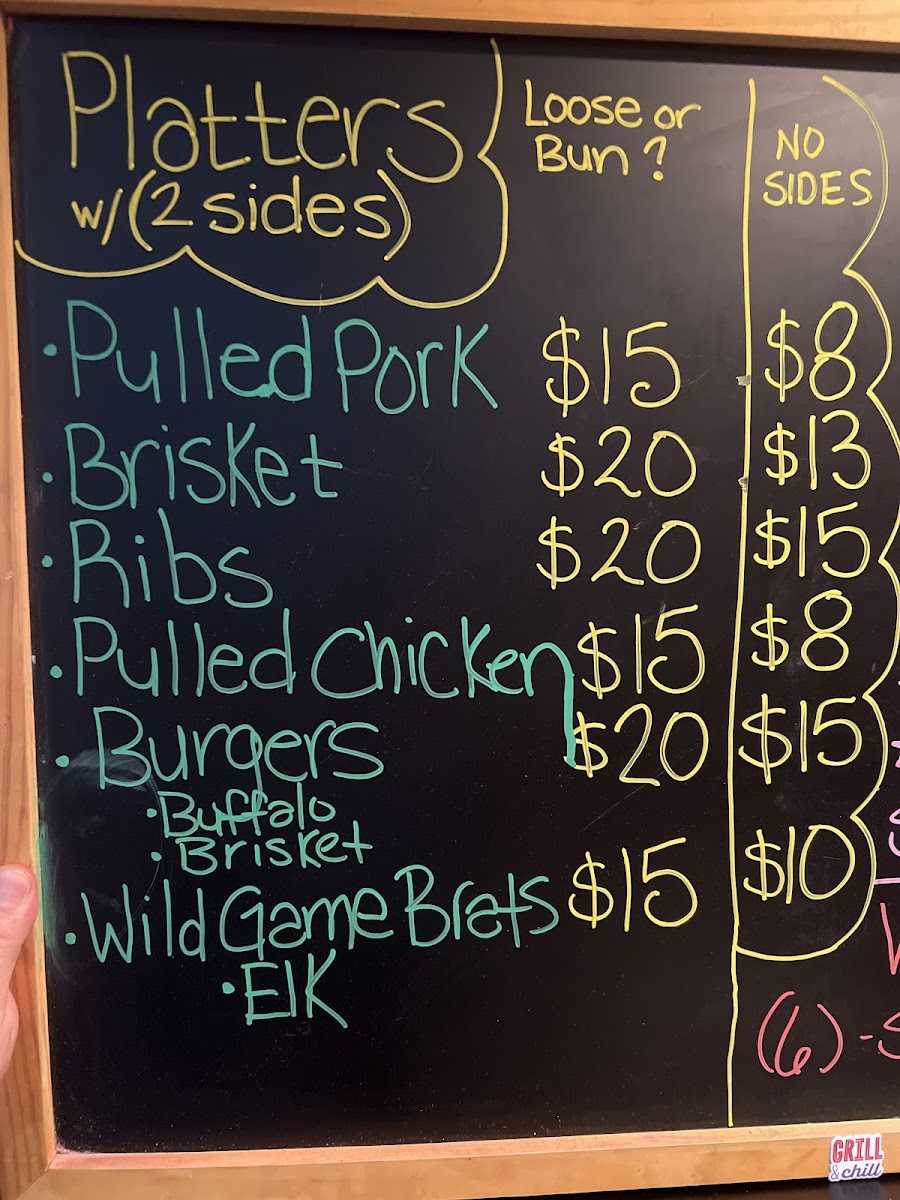 Platters
w/(2 sides)
Loose or
Bun?
NO
SIDES
• Pulled Pork $15 $8
• Brisket $20 $13
• Ribs $20 $15
• Pulled Chicken $15 $8
• Burgers $20 $15
• Buffalo
• Brisket
• Wild Game Brats $15 $10
• Elk
(6)-S
GRILL
& chill